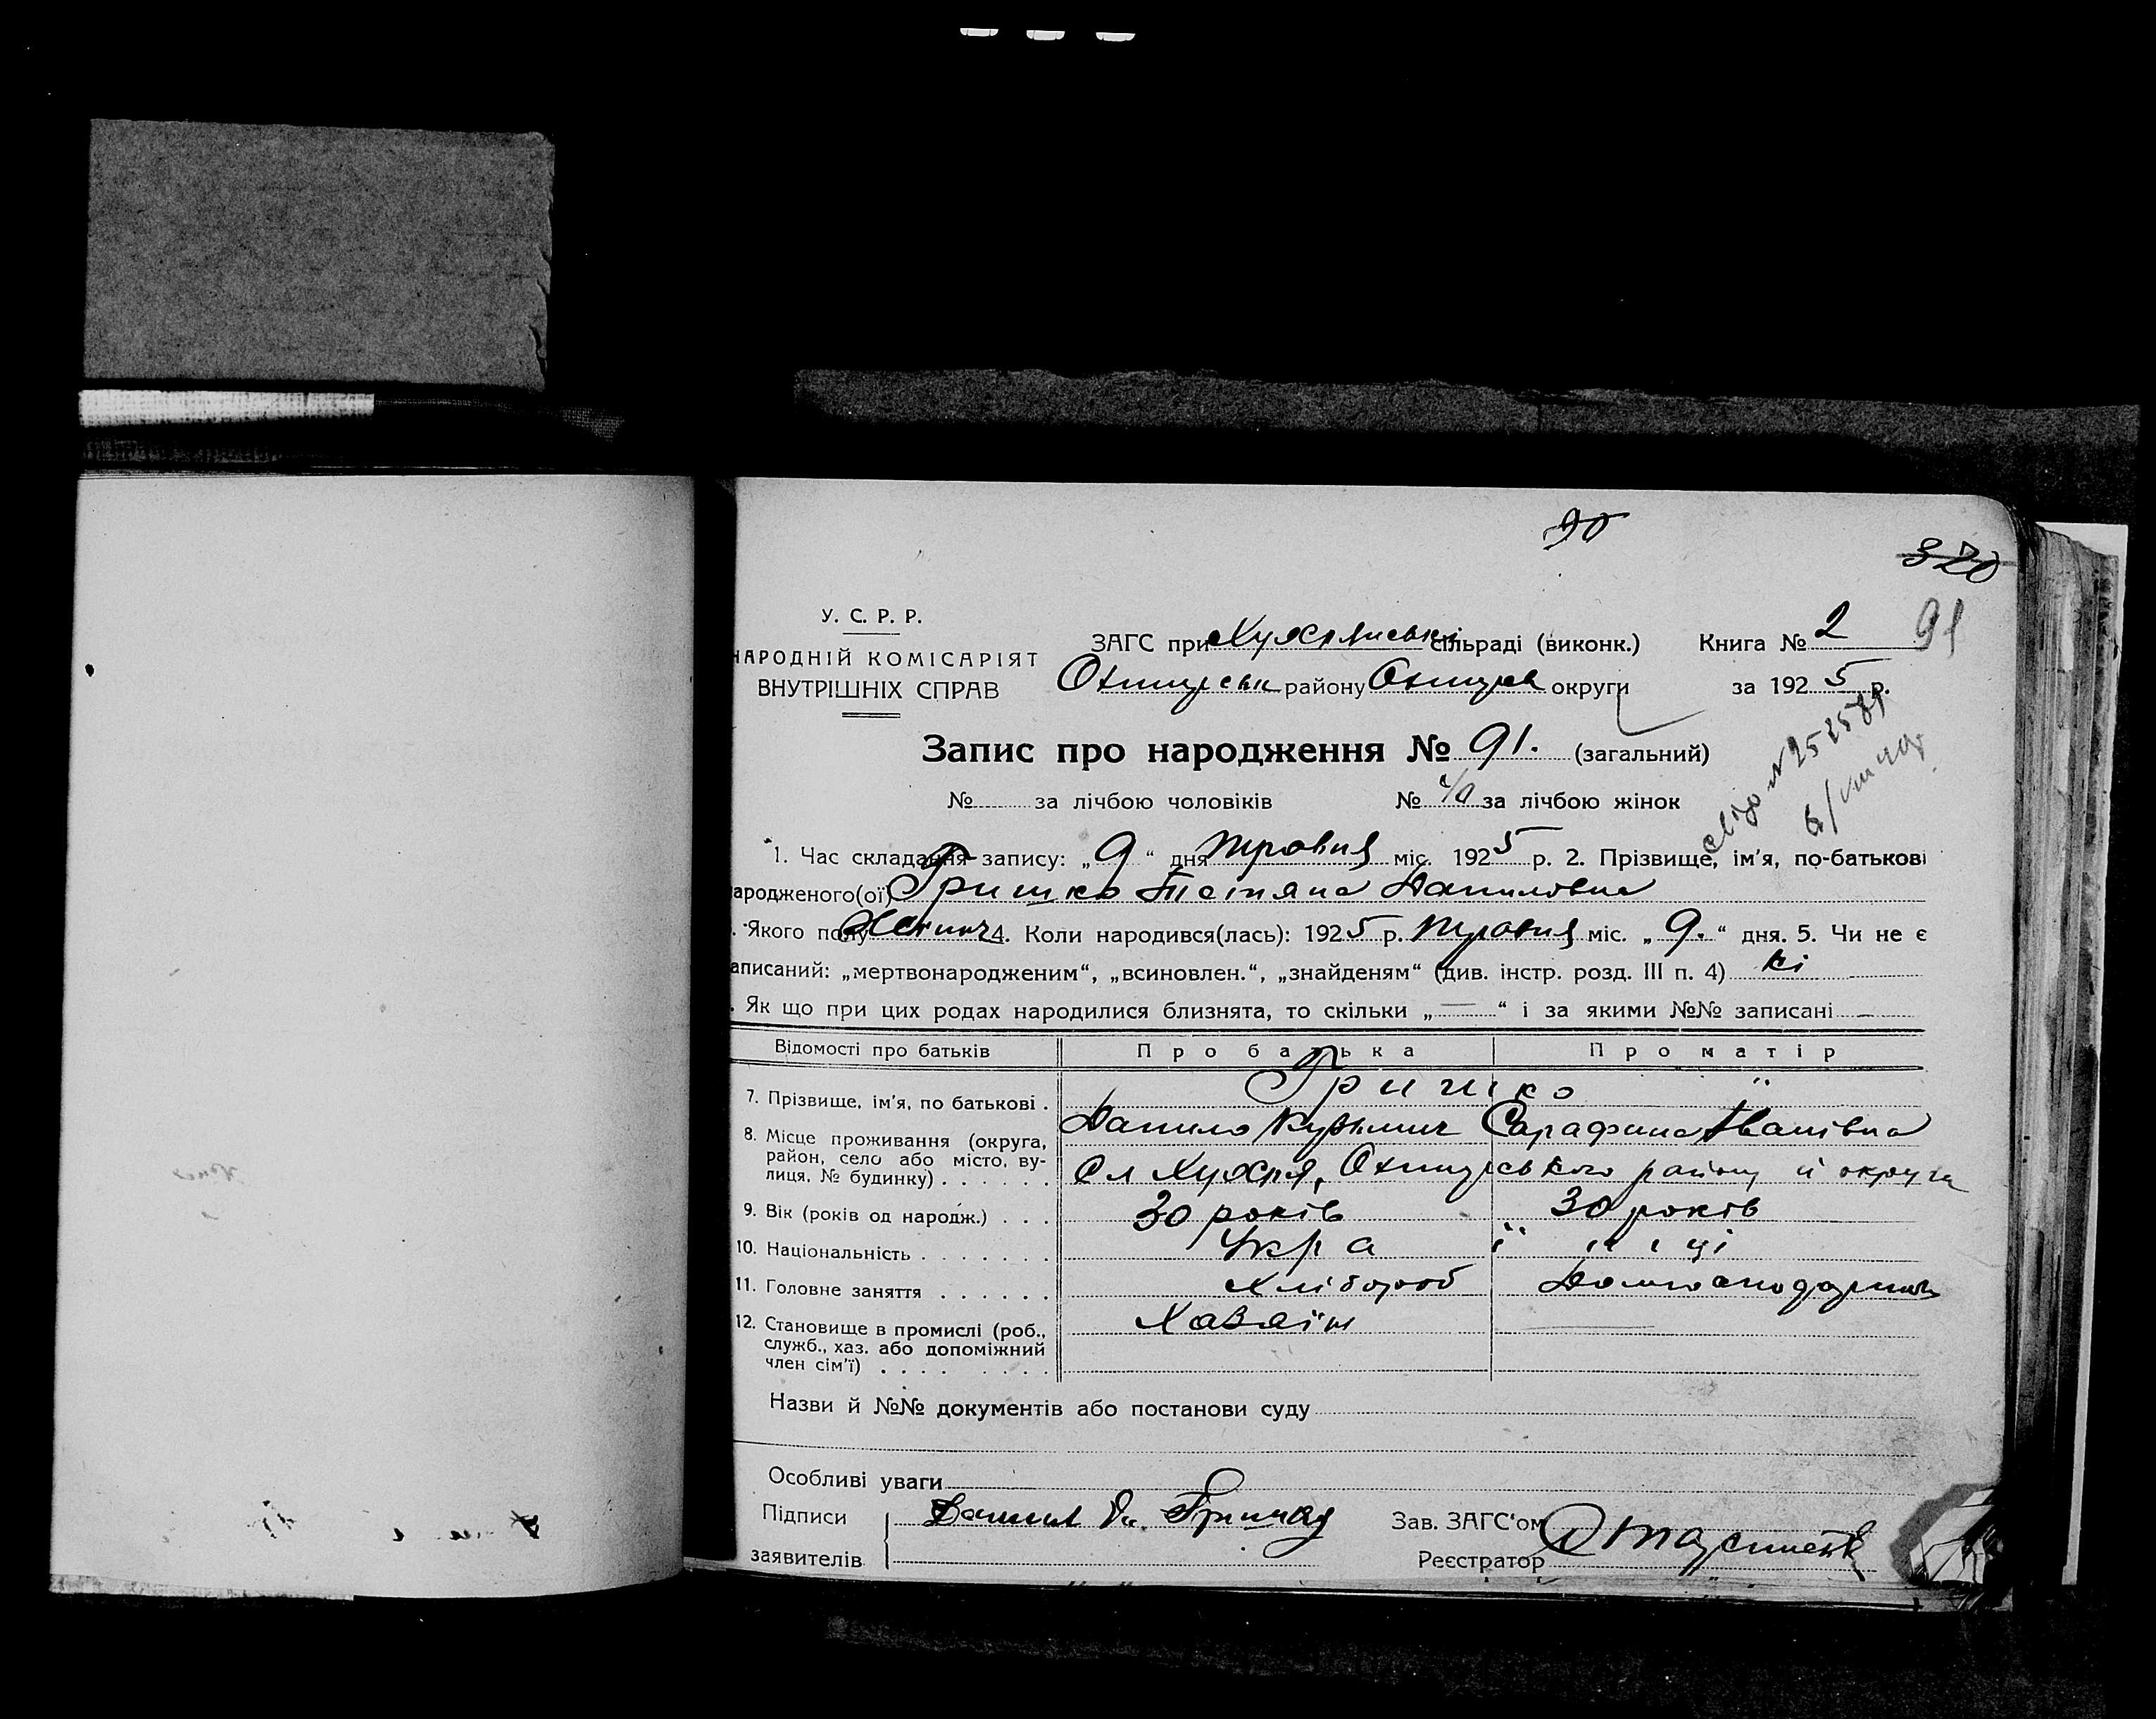 90
320
У. С. Р. Р.
НАРОДНІЙ КОМІСАРІЯТ
ВНУТРІШНІХ СПРАВ
ЗАГС при Хухрянські сільраді (виконк.) Книга № 2 91
Охтирськ району Охтирск округи за 1925 р.
Запис про народження № 91. (загальний)
№ за лічбою чоловіків № 40 за лічбою жінок
1. Час складання запису: „9“ дня травня міс. 1925 р. 2. Прізвище, ім'я, по-батькові
народженого(ої) Гришко Тетяна Даниловна
. Якого полу Жіноч 4. Коли народився(лась): 1925 р. травня міс. „9.“ дня. 5. Чи не є
аписаний: „мертвонародженим“, „всиновлен.“, „знайденям“ (див. інстр. розд. III п. 4) ні
. Як що при цих родах народилися близнята, то скільки „—“ і за якими №№ записані —
Відомості про батьків Про батька Про матір
7. Прізвище, ім'я, по батькові . Гришко "
Данило Кузьмич Сарафина Іванівна
8. Місце проживання (округа, район, село або місто, вулиця, № будинку) . . . . . . Сл Хухря, Охтирського району й округи
9. Вік (років од народж.) . . . 30 років 30 років
10. Національність . . . . . . Українці
11. Головне заняття . . . . . . Хлібороб Домогосподарка
12. Становище в промислі (роб., служб., хаз. або допоміжний член сім'ї) . . . . Хазяїн —
Назви й №№ документів або постанови суду
Особливі уваги
Підписи
заявителів
Зав. ЗАГС'ом
Реєстратор